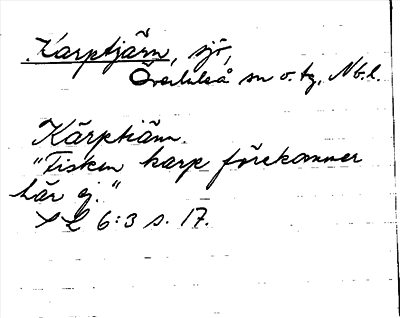 Karptjärn, sjö,
Överkalix sn o. tg, Nb.l.
Kärptiäm.
"Fisken karp förekommer
här ej."
SL 6:3 s. 17.